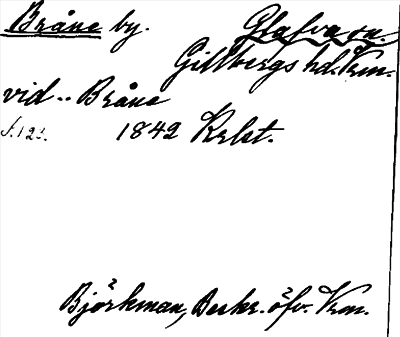 Bråne by. Glafva sn.
Gillbergs hd. Vrm.
vid .. Bråne
s. 123. 1842 Krlst.
Björkman, Beskr. öfv. Vrm.